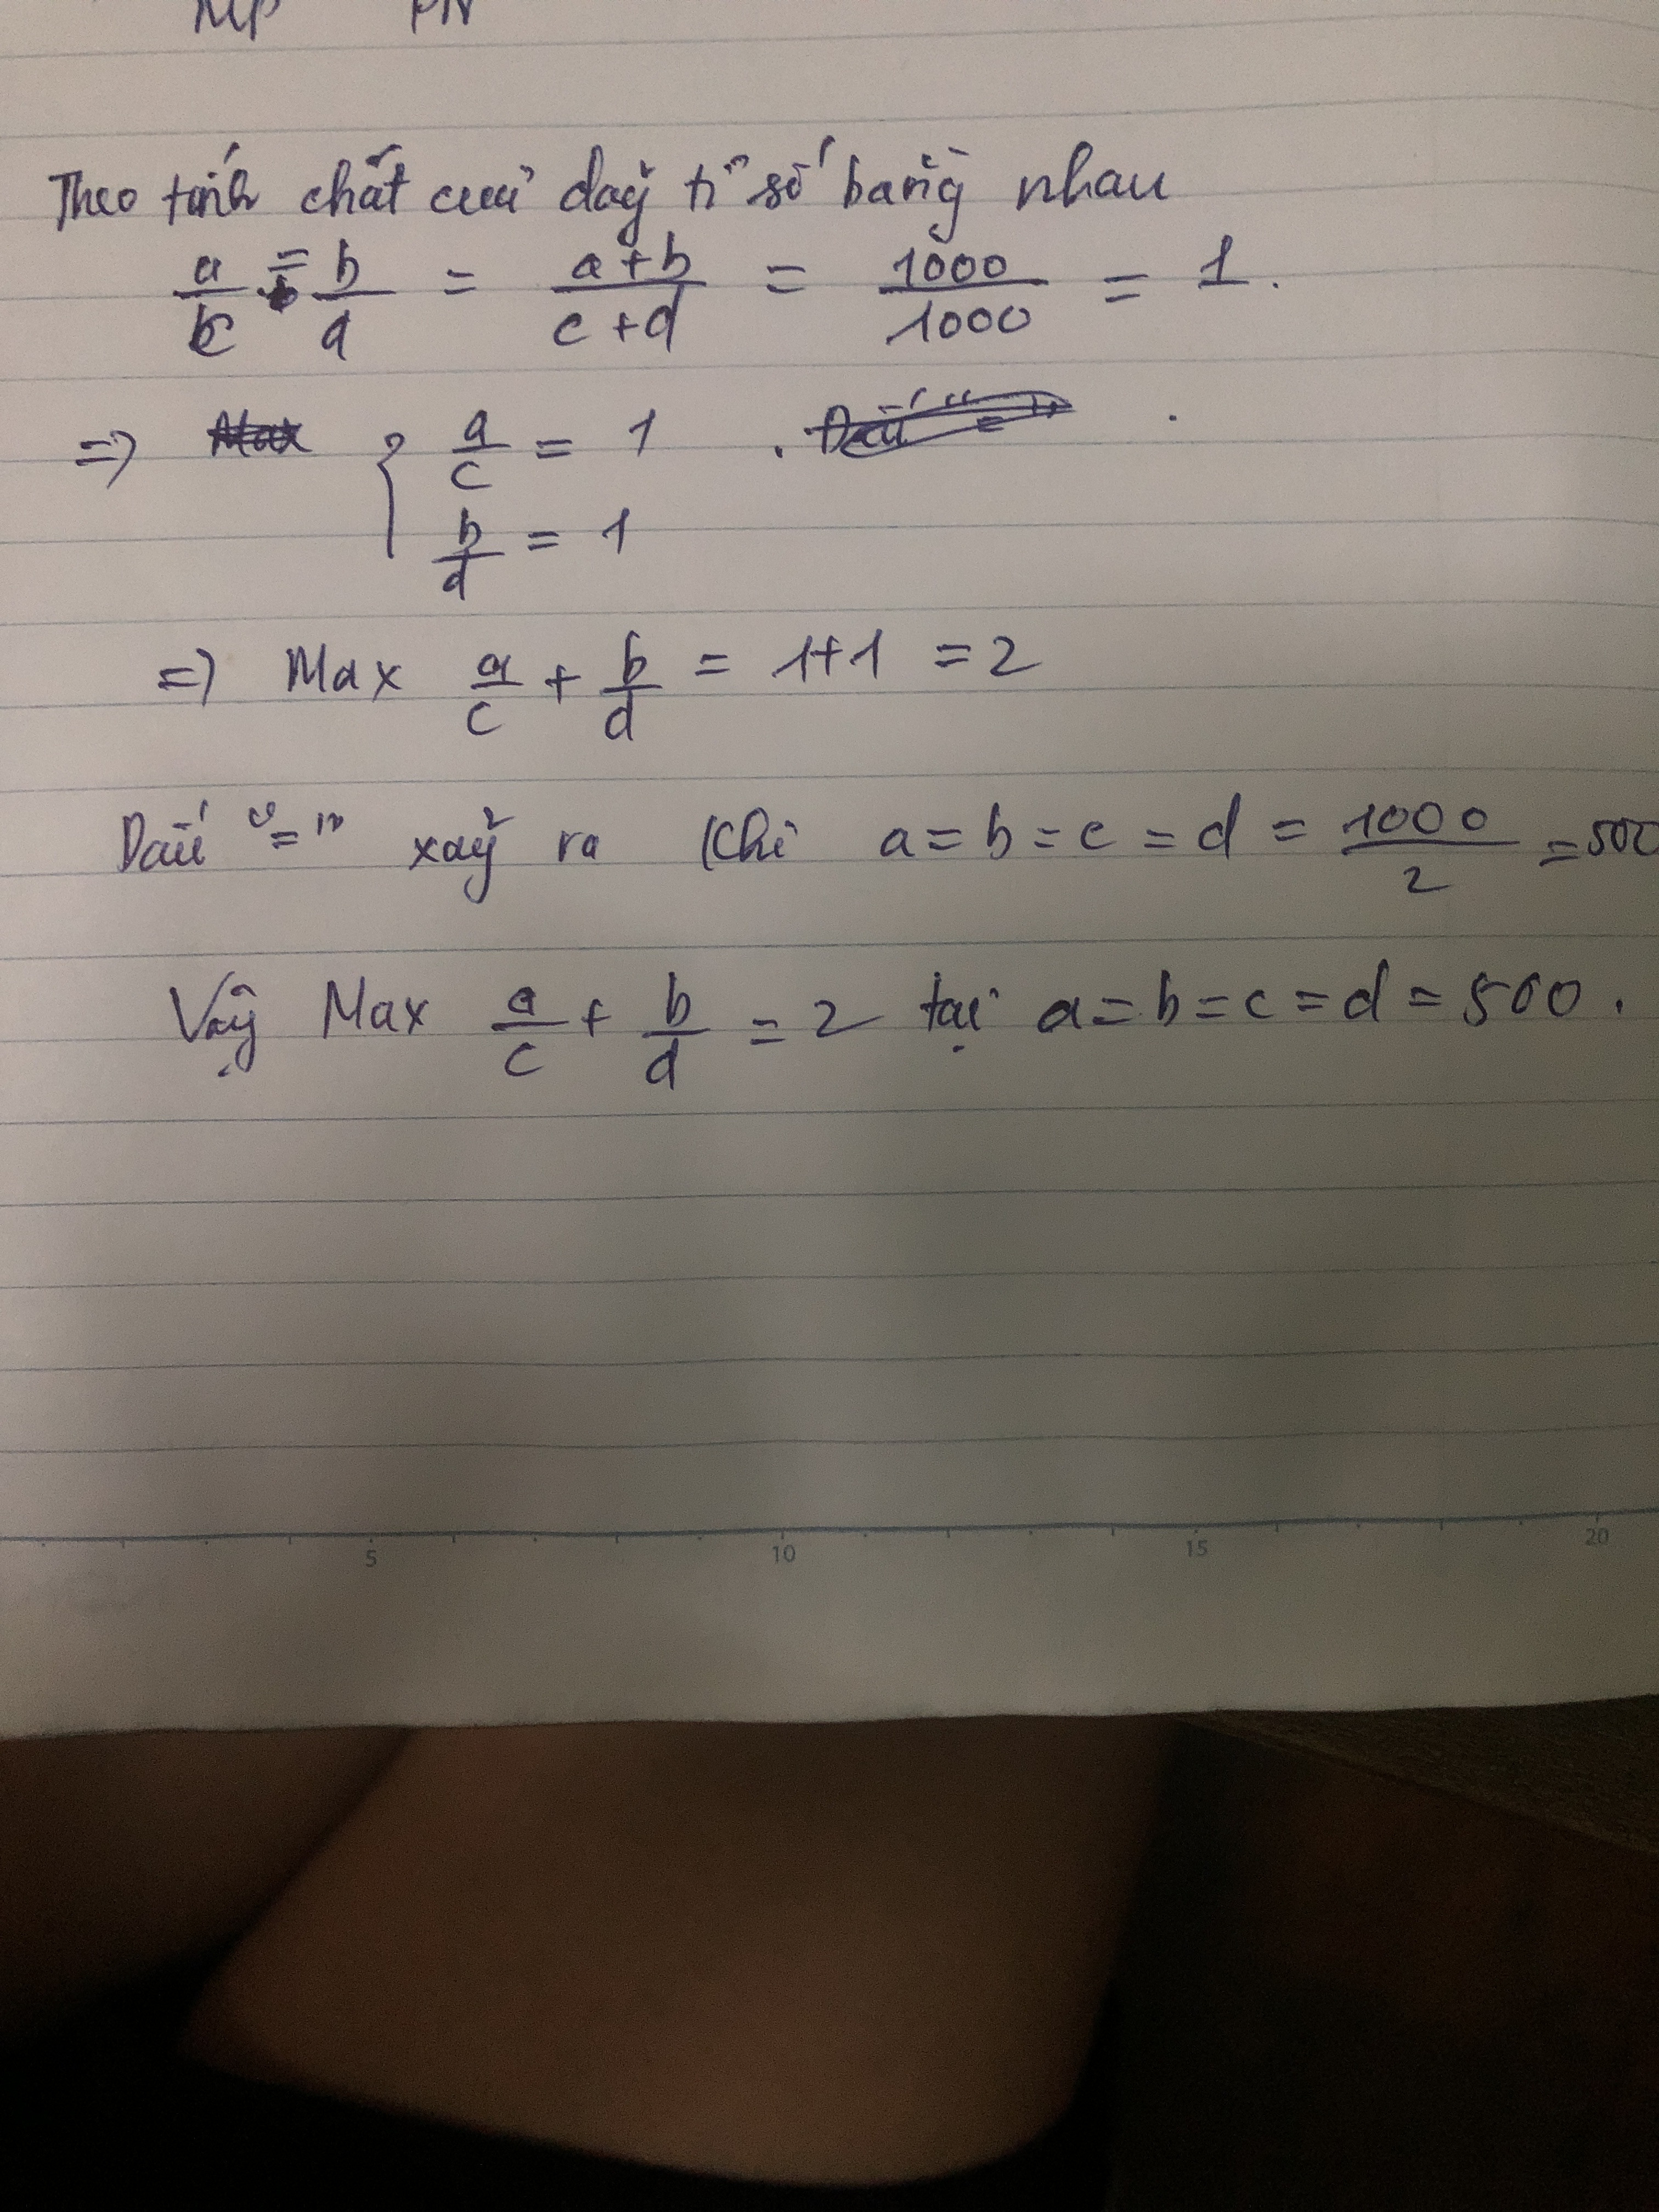 MP PN
Theo tính chất của dãy tỉ số bằng nhau
a/c = b/d = a+b/c+d = 1000/1000 = 1.
=> { a/c = 1
b/d = 1
=> Max a/c + b/d = 1+1 = 2
Dấu "=" xảy ra khi a = b = c = d = 1000/2 = 500
Vậy Max a/c + b/d = 2 tại a = b = c = d = 500.
5 10 15 20